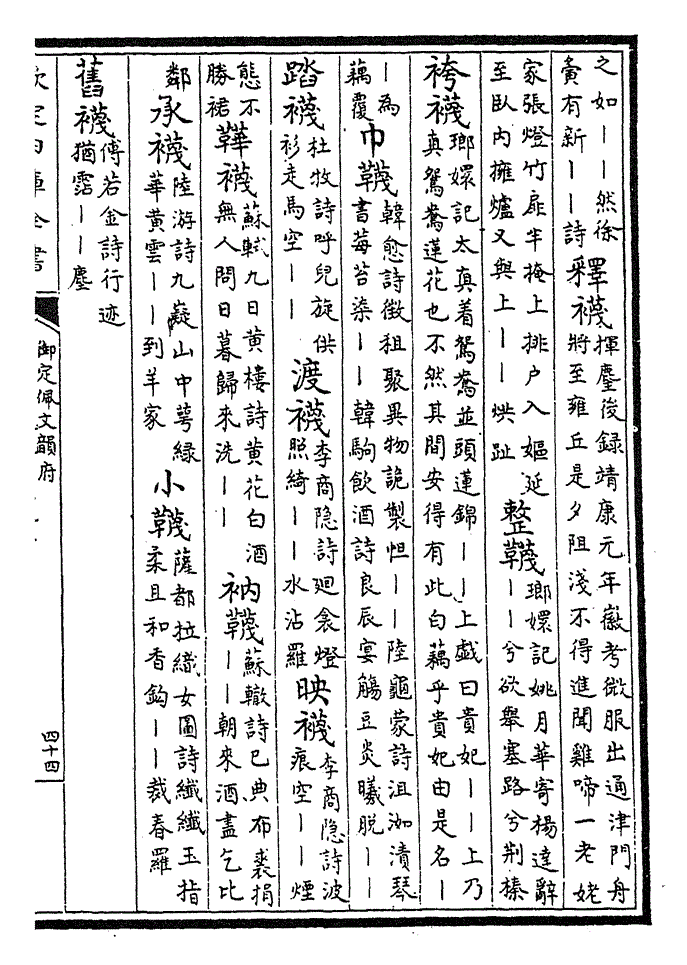 之如｜｜然徐
黃有新｜｜詩
釋襪
揮麈後録靖康元年徽考微服出通津門舟
將至雍丘是夕阻淺不得進聞雞啼一老姥
家張燈竹扉半掩上排户入嫗延
至臥内擁爐又與上｜｜烘趾
整韈
瑯嬛記姚月華寄楊達辭
｜｜兮欲舉塞路兮荆榛
袴襪
瑯嬛記太真着鴛鴦並頭蓮錦｜｜上戲曰貴妃｜｜上乃
真鴛鴦蓮花也不然其間安得有此白藕乎貴妃由是名｜
｜為
藕覆
巾韈
韓愈詩徵租聚異物詭製怛｜｜陸龜蒙詩沮洳漬琴
書莓苔染｜｜韓駒飲酒詩良辰宴觴豆炎曦脱｜｜
踏襪
杜牧詩呼兒旋供
衫走馬空｜｜
渡襪
李商隱詩廻衾燈
照綺｜｜水沾羅
映襪
李商隱詩波
痕空｜｜煙
態不
勝裙
韡襪
蘇軾九日黄樓詩黄花白酒
無人問日暮歸來洗｜｜
衲韈
蘇轍詩已典布裘捐
｜｜朝來酒盡乞比
鄰
承襪
陸游詩九嶷山中萼緑
華黄雲｜｜到羊家
小韈
薩都拉織女圖詩纖纖玉指
柔且和香鈎｜｜裁春羅
舊襪
傅若金詩行迹
猶霑｜｜塵
欽定四庫全書
御定佩文韻府
四十四